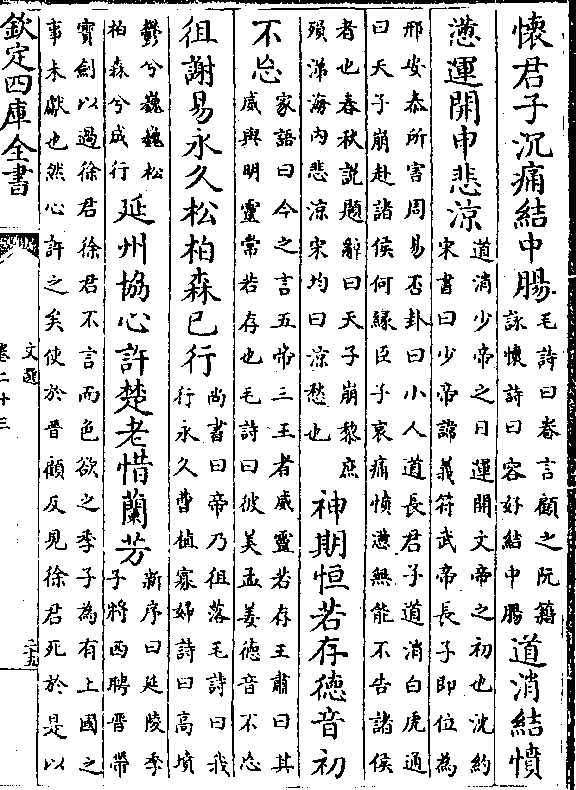 懷君子沉痛結中腸
毛詩曰眷言顧之阮籍
詠懷詩曰容好結中腸
道消結憤
懣運開申悲涼
道消少帝之日運開文帝之初也沈約
宋書曰少帝諱義符武帝長子即位為
邢安泰所害周易否卦曰小人道長君子道消白虎通
曰天子崩赴諸侯何緣臣子哀痛憤懣無能不告諸侯
者也春秋説題辭曰天子崩黎庶
殞涕海內悲涼宋均曰涼愁也
神期恒若存德音初
不忘
家語曰今之言五帝三王者威靈若存王肅曰其
威與明靈常若存也毛詩曰彼美孟姜德音不忘
徂謝易永久松柏森已行
尚書曰帝乃徂落毛詩曰我
行永久曹植寡婦詩曰高墳
鬱兮巍巍松
柏森兮成行
延州協心許楚老惜蘭芳
新序曰延陵季
子將西聘晉帶
寳劍以過徐君徐君不言而色欲之季子為有上國之
事未獻也然心許之矣使於晉顧反見徐君死於是以
欽定四庫全書
文選
卷二十三